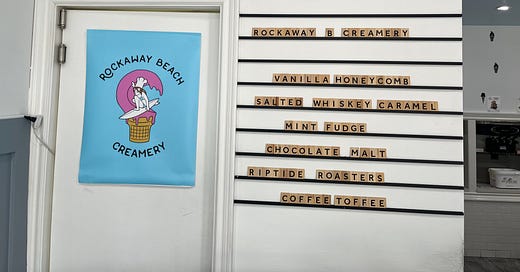 ROCKAWAY BEACH
CREAMERY
ROCKAWAY B CREAMERY
VANILLA HONEYCOMB
SALTED WHISKEY CARAMEL
MINT FUDGE
CHOCOLATE MALT
RIPTIDE ROASTERS
COFFEE TOFFEE